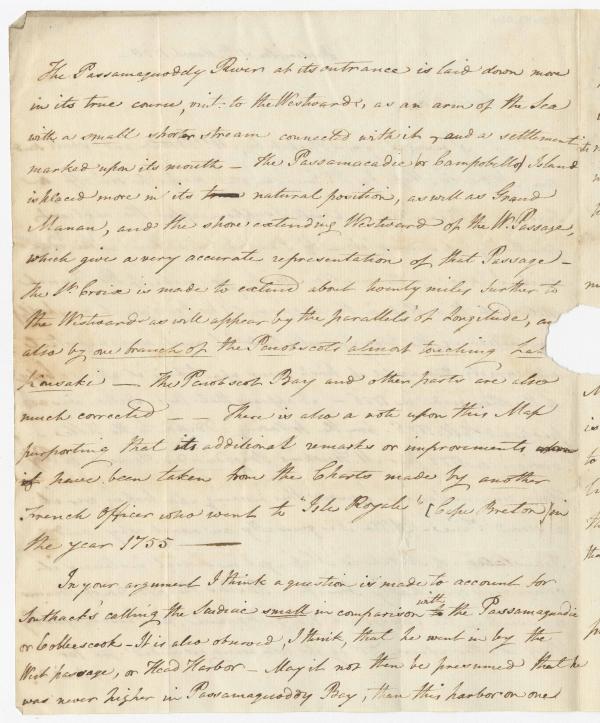 The Passamaquoddy River at its entrance is laid down more
in its true course, vizt: to the Westward, as an arm of the Sea
with a small shorter stream connected with it, and a settlement
marked upon its mouth — the Passamacadie or Campobello Island
is placed more in its natural position, as well as Grand
Manan, and the shore extending Westward of the W. Passage,
which give a very accurate representation of that Passage —
the St Croix is made to extend about twenty miles further to
the Westward as will appear by the parallels of Longitude,
also by one branch of the Penobscots almost touching
kousaki — the Penobscot Bay and other parts are also
much corrected — — There is also a note upon this Map
purporting that its additional remarks or improvements
have been taken from the Charts made by another
French Officer who went to "Isle Royale" [Cape Breton] in
the year 1755 —
In your argument I think a question is made to account for
Southack's calling the Scudiac small in comparison with the Passamaquadie
or Cobbescook — It is also observed, I think, that he went in by the
West passage, or Head Harbor — May it not then be presumed that he
was never higher in Passamaquoddy Bay, than this harbor on one